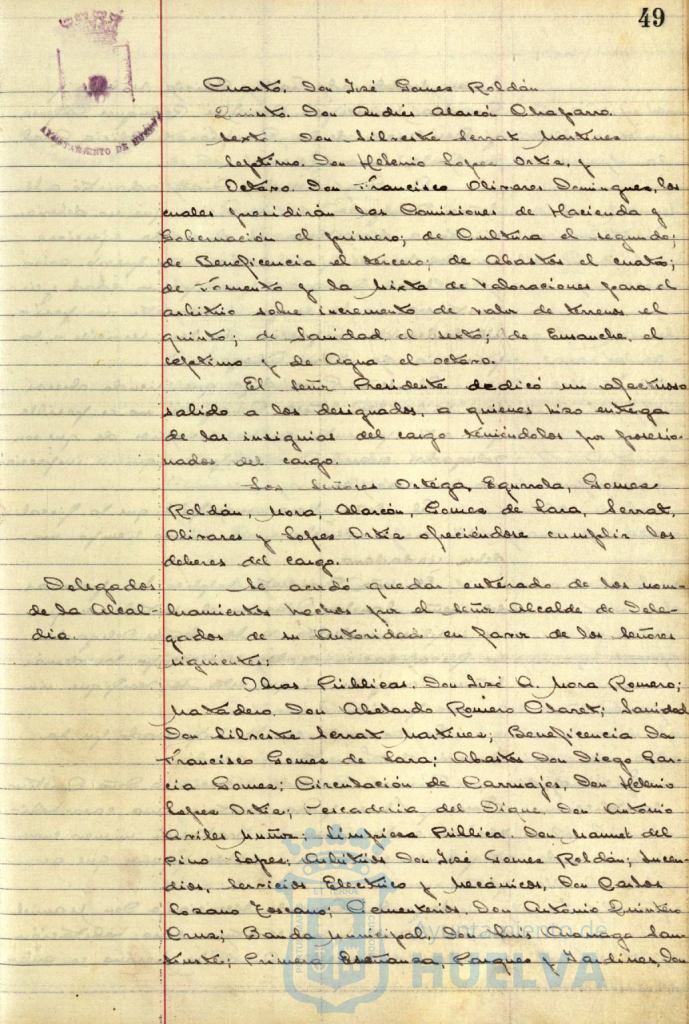 49
AYUNTAMIENTO DE HUELVA
Cuarto. Don José Gomez Roldán
Quinto. Don Andrés Alarcón Chaparro.
Sexto Don Silvestre Serrat Martinez
Septimo. Don Helenio Lopez Ortiz, y
Octavo. Don Francisco Olivares Dominguez, los
cuales presidirán las Comisiones de Hacienda y
Gobernación el primero; de Cultura el segundo;
de Beneficencia el tercero; de Abastos el cuarto;
de Fomento y la Mixta de Valoraciones para el
arbitrio sobre incremento de valor de terrenos el
quinto; de Sanidad el sexto; de Ensanche, el
septimo y de Agua el octavo.
El señor Presidente dedicó un afectuoso
saludo a los designados, a quienes hizo entrega
de las insignias del cargo teniéndolos por posesio-
nados del cargo.
Los Señores Ortega, Egurrola, Gomez
Roldán, Mora, Alarcón, Gomez de Lara, Serrat,
Olivares y Lopez Ortiz ofreciéndose cumplir los
deberes del cargo.
Delegados
de la Alcal-
dia.
Se acordó quedar enterado de los nom-
bramientos hechos por el señor Alcalde de Dele-
gados de su Autoridad en favor de los señores
siguientes:
Obras Públicas. Don José A. Mora Romero;
Matadero. Don Abelardo Romero Claret; Sanidad
Don Silvestre Serrat Martinez; Beneficencia Don
Francisco Gomez de Lara; Abastos Don Diego Gar-
cia Gomez; Circulación de Carruajes, Don Helenio
Lopez Ortiz; Pescaderia del Dique Don Antonio
Aviles Muñoz; Limpieza Pública. Don Manuel del
Pino Lopez; Arbitrios Don José Gomez Roldán; Incen-
dios, Servicios Electrico y Mecánicos, Don Carlos
Lozano Toscano; Cementerios, Don Antonio Quintero
Cruz; Banda Municipal, Don Luis
Primera Enseñanza, Parques y Jardines, Don
Ayuntamiento de
HUELVA